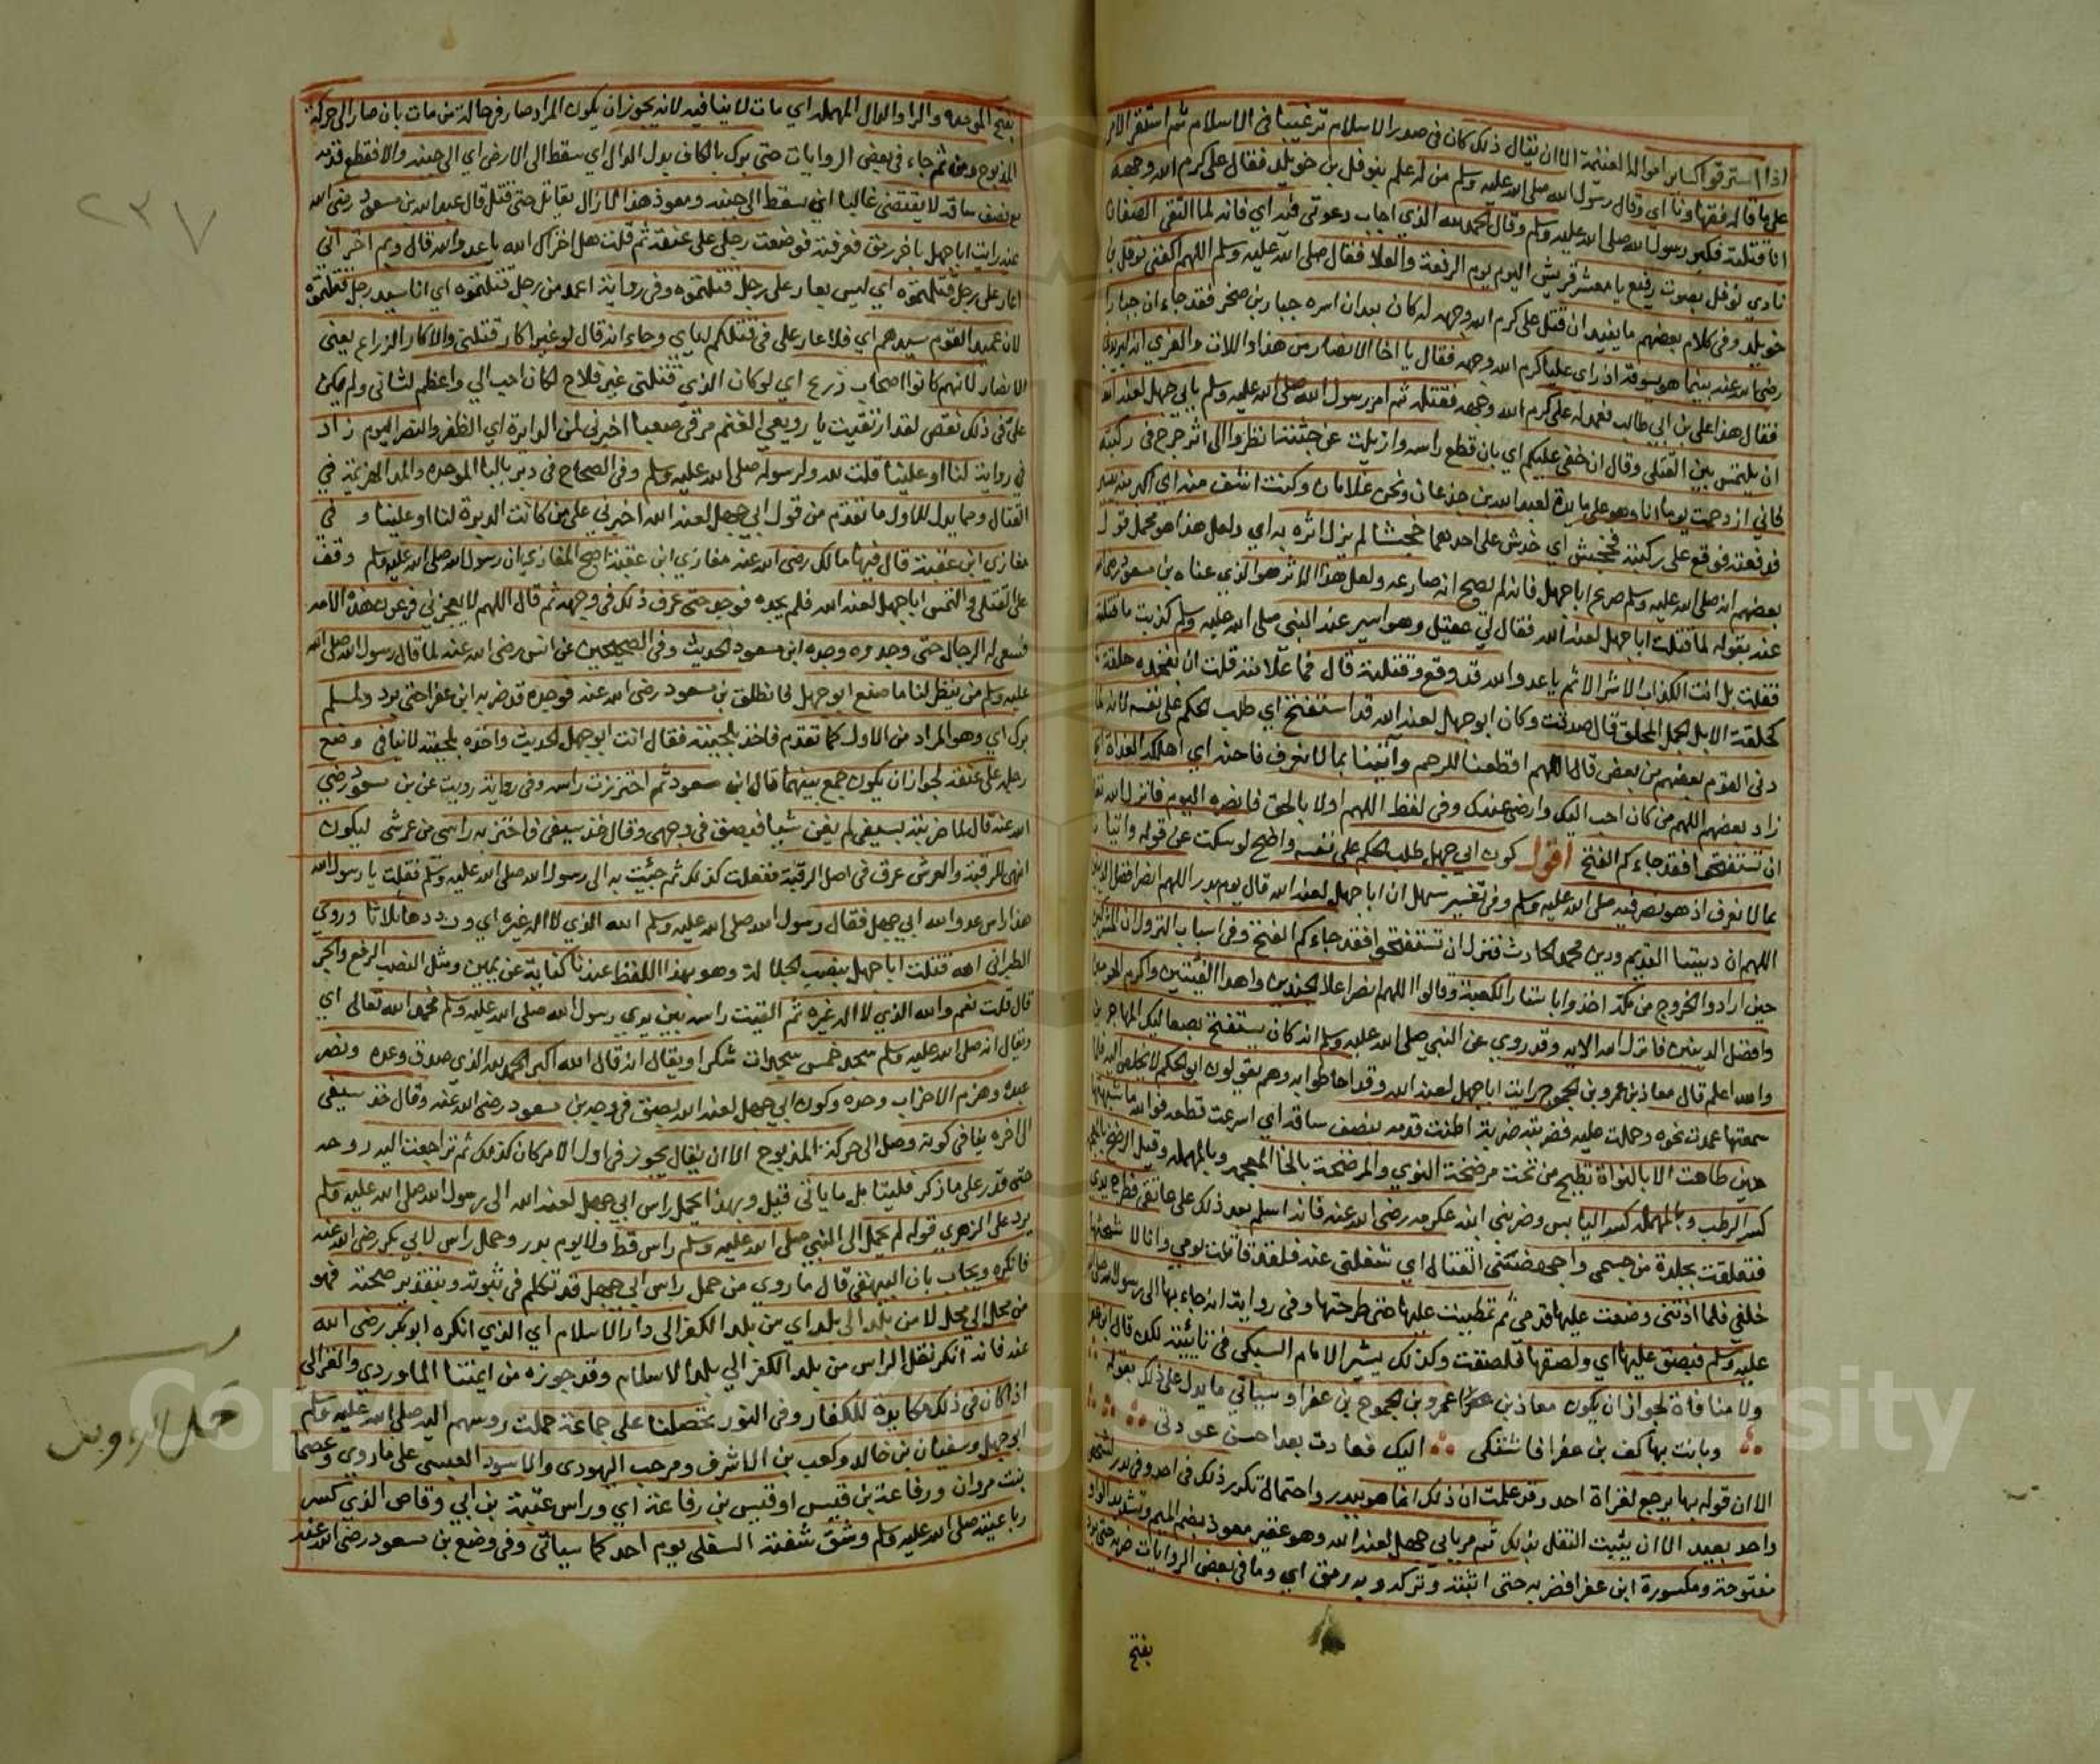 اذا استرقوا كسا من اموال الغنيمة الا ان يقال ذلك كان في صدر الاسلام ترغيبا في الاسلام ثم استقر الامر
على ما قاله فقهاونا اي وقال رسول الله صلى الله عليه وسلم من له علم بنوفل بن خويلد فقال علي كرم الله وجهه
انا قتلته فكبر رسول الله صلى الله عليه وسلم وقال الحمد لله الذي اجاب دعوتي فيه اي فانه لما التقى الصفان
نادى نوفل بصوت رفيع يا معشر قريش اليوم يوم الرفعة والعلا فقال صلى الله عليه وسلم اللهم اكفني نوفل بن
خويلد وفي كلام بعضهم ما يفيد ان قتل علي كرم الله وجهه له كان بعد ان اسره جبار بن صخر فقد جاء ان جبارا
رضي الله عنه بينما هو يسوقه اذ راى عليا كرم الله وجهه فقال يا اخا الانصار من هذا واللات والعزى انه ليريدني
فقال هذا علي بن ابي طالب فعمد له علي كرم الله وجهه فقتله ثم امر رسول الله صلى الله عليه وسلم بابي جهل لعنه الله
ان يلتمس بين القتلى وقال ان خفي عليكم اي بان قطع راسه وازيلت عن جثته انظروا الى اثر جرح في ركبته
فاني ازدحمت يوما انا وهو على مايدة لعبد الله بن جذعان ونحن غلامان وكنت اشف منه اي اكبر منه بيسير
فدفعته فوقع على ركبته فجحش اي خدش على احدهما جحشا لم يزل اثره به اي ولعل هذا هو محمل قول
بعضهم انه صلى الله عليه وسلم صرع ابا جهل فانه لم يصح انه صارعه ولعل هذا الاثر هو الذي عناه بن مسعود رضي الله
عنه بقوله لما قتلت ابا جهل لعنه الله فقال لي عقيل وهو اسير عند النبي صلى الله عليه وسلم كذبت ما قتلته
فقلت بل انت الكذاب الاشر الاثم يا عدو الله قد وقع وقتلته قال فما علامته قلت ان بفخده حلقة
كحلقة الابل الجمل المحلق قال صدقت وكان ابو جهل لعنه الله قد استفتح اي طلب الحكم على نفسه لانه لما
دنى القوم بعضهم من بعض قال اللهم اقطعنا للرحم وآتينا بما لا نعرف فاحنه اي اهلكه الغداة
زاد بعضهم اللهم من كان احب اليك وارضى عندك وفي لفظ اللهم اولانا بالحق فانصره اليوم فانزل الله تعالى
ان تستفتحوا فقد جاءكم الفتح اقول كون ابي جهل طلب الحكم على نفسه واضح لو سكت عن قوله واتيانا
بما لا نعرف اذ هو نص فيه صلى الله عليه وسلم وفي تفسير سهل ان ابا جهل لعنه الله قال يوم بدر اللهم انصر افضل الدينين
اللهم ان ديننا القديم ودين محمد الحادث فنزل ان تستفتحوا فقد جاءكم الفتح وفي اسباب النزول ان المشركين
حين ارادوا الخروج من مكة اخذوا باستار الكعبة وقالوا اللهم انصر اعلا الجندين واهدا الفيتين واكرم الحزبين
وافضل الدينين فانزل الله الاية وقد روي عن النبي صلى الله عليه وسلم انه كان يستفتح بصعاليك المهاجرين
والله اعلم قال معاذ بن عمرو بن الجموح رايت ابا جهل لعنه الله وقد احاطوا به وهم يقولون ابو الحكم لا يخلص اليه فلما
سمعتها عمدت نحوه وحملت عليه فضربته ضربة اطنت قدمه بنصف ساقه اي اسرعت قطعه فوالله ما شبهتها
حين طاحت الا بالنواة تطيح من تحت مرضخة النوى والمرضخة بالخا المعجمة وبالمهملة وقيل الرضخ بالمعجمة
كسر الرطب وبالمهملة كسر اليابس وضربني ابنه عكرمة رضي الله عنه فانه اسلم بعد ذلك على عاتقي فطرح يدي
فتعلقت بجلدة من جسمي واجهضتني القتال اي شغلني عنه فلقد قاتلت يومي وانا لا سحبها
خلفي فلما اذتني وضعت عليها قدمي ثم تمطيت عليها حتى طرحتها وفي رواية انه جاء بها الى رسول الله صلى الله
عليه وسلم فبصق عليها اي ولصقها فلصقت وكذلك يشير الامام السبكي في تائيته لكن قال ابن عفرا
ولا منافاة لجواز ان يكون معاذ بن عمرو بن الجموح بن عفرا وسياتي ما يدل على ذلك بقوله
وبانت بها كف بن عفرا فاشتكى اليك فعادت بعد احسن عودتي
الا ان قوله بها يرجع لغزاة احد وقد علمت ان ذلك انما هو ببدر واحتمال تكرر ذلك في احد وفي بدر لشخص
واحد بعيد الا ان يثبت النقل بذلك ثم مر بابي جهل لعنه الله وهو عفير معوذ بضم الميم وتشديد الواو
مفتوحة ومكسورة ابن عفرا فضربه حتى اثبته وتركه وبه رمق اي وما في بعض الروايات ضربه حتى برد
بفتح
بفتح الموحدة والرا والدال المهملة اي مات لا ينافيه لانه يجوز ان يكون المراد صار في حالة من مات بان صار الى حركة
المذبوح ومن ثم جاء في بعض الروايات حتى برك بالكاف بدل الدال اي سقط الى الارض اي الى جنبه والا فقطع قدمه
مع نصف ساقه لا يقتضي غالبا ان يسقط الى جنبه ومعوذ هذا لا زال يقاتل حتى قتل قال عبد الله بن مسعود رضي الله
عنه رايت ابا جهل باخر رمق فعرفته فوضعت رجلي على عنقه ثم قلت هل اخزاك الله يا عدو الله قال وبم اخزاني
اعار على رجل قتلتموه اي ليس بعار على رجل قتلتموه وفي رواية اعمد من رجل قتلتموه اي انا سيد رجل قتلتموه
لان عميد القوم سيدهم اي فلا عار علي في قتلكم اياي وجاء انه قال لو غير اكار قتلني والاكار الزراع يعني
الانصار لانهم كانوا اصحاب زرع اي لو كان الذي قتلني غير فلاح لكان احب الي واعظم لشاني ولم يكن
علي في ذلك نقص لقد ارتقيت يا رويعي الغنم مرقى صعبا اخبرني لمن الدايرة اي الظفر والنصر اليوم زاد
في رواية لنا او علينا قلت لله ولرسوله صلى الله عليه وسلم وفي الصحاح في دبر بالبا الموحدة والدبرة الهزيمة في
القتال ومما يدل للاول ما تقدم من قول ابي جهل لعنه الله اخبرني على من كانت الدبرة لنا او علينا و في
مغازي ابن عقبة قال فيها مالك رضي الله عنه مغازي ابن عقبة اصح المغازي ان رسول الله صلى الله عليه وسلم وقف
على القتلى والتمس ابا جهل لعنه الله فلم يجده فوجد حتى عرف ذلك في وجهه ثم قال اللهم لا يعجزني فرعون هذه الامة
فسعى له الرجال حتى وجدوه وجده ابن مسعود الحديث وفي الصحيحين عن انس رضي الله عنه لما قال رسول الله صلى الله
عليه وسلم من ينظر لنا ما صنع ابو جهل فانطلق بن مسعود رضي الله عنه فوجده قد ضربه ابن عفرا حتى برد ولمسلم
برك اي وهو المراد من الاول كما تقدم فاخذ بلحيته فقال انت ابو جهل الحديث واخذه بلحيته لا ينافي وضع
رجله على عنقه لجواز ان يكون جمع بينهما قال ابن مسعود ثم احتززت راسه وفي رواية رويت عن بن مسعود رضي
الله عنه قال لما ضربته بسيفي لم يغن شيا فبصق في وجهي وقال خذ سيفي فاحتز به راسي من عرشي ليكون
انهى للرقبة والعرش عرق في اصل الرقبة ففعلت كذلك ثم جئت به الى رسول الله صلى الله عليه وسلم فقلت يا رسول الله
هذا راس عدو الله ابي جهل فقال رسول الله صلى الله عليه وسلم الله الذي لا اله غيره اي ورددها ثلاثا وروى
الطبراني الله قتلت ابا جهل بنصب الجلالة وهو بهذا اللفظ عندنا كناية عن يمين ومثل النصب الرفع والجر
قال قلت نعم والله الذي لا اله غيره ثم القيت راسه بين يدي رسول الله صلى الله عليه وسلم فحمد الله تعالى اي
ويقال انه صلى الله عليه وسلم سجد خمس سجدات شكرا ويقال انه قال الله اكبر الحمد لله الذي صدق وعده ونصر
عبده وهزم الاحزاب وحده وكون ابي جهل لعنه الله بصق في وجه بن مسعود رضي الله عنه وقال خذ سيفي
الى اخره ينافي كونه وصل الى حركة المذبوح الا ان يقال يجوز في اول الامر كان كذلك ثم تراجعت اليه روحه
حتى قدر على ما ذكر فليتامل ما ياتي قبل وبهذا يحمل راس ابي جهل لعنه الله الى رسول الله صلى الله عليه وسلم
يرد على الزهري قوله لم يحمل الى النبي صلى الله عليه وسلم راس قط ولا يوم بدر وحمل راس لابي بكر رضي الله عنه
فانكره ويجاب بان البيهقي قال ما روي من حمل راس ابي جهل قد تكلم في ثبوته وبتقدير صحته فهو
من محل الى محل لا من بلد الى بلد اي من بلد الكفر الى دار الاسلام اي الذي انكره ابو بكر رضي الله
عنه فانه انكر نقل الراس من بلد الكفر الى بلد الاسلام وقد جوزه من ايمتنا الماوردي والغزالي
اذا كان في ذلك مكايدة للكفار وفي النور تحصلنا على جماعة حملت روسهم اليه صلى الله عليه وسلم
ابو جهل وسفيان بن خالد وكعب بن الاشرف ومرحب اليهودي والاسود العبسي على ما روي وعصما
بنت مروان ورفاعة بن قيس او قيس بن رفاعة اي وراس عتبة بن ابي وقاص الذي كسر
رباعيته صلى الله عليه وسلم وشق شفته السفلى يوم احد كما سياتي وفي وضع بن مسعود رضي الله عنه
٢٣٧
Copyright © King Saud University